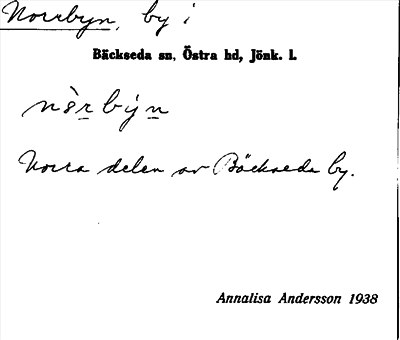 Norrbyn, by i
Bäckseda sn, Östra hd, Jönk. l.
nòrbýn
Norra delen av Bäckseda by.
Annalisa Andersson 1938